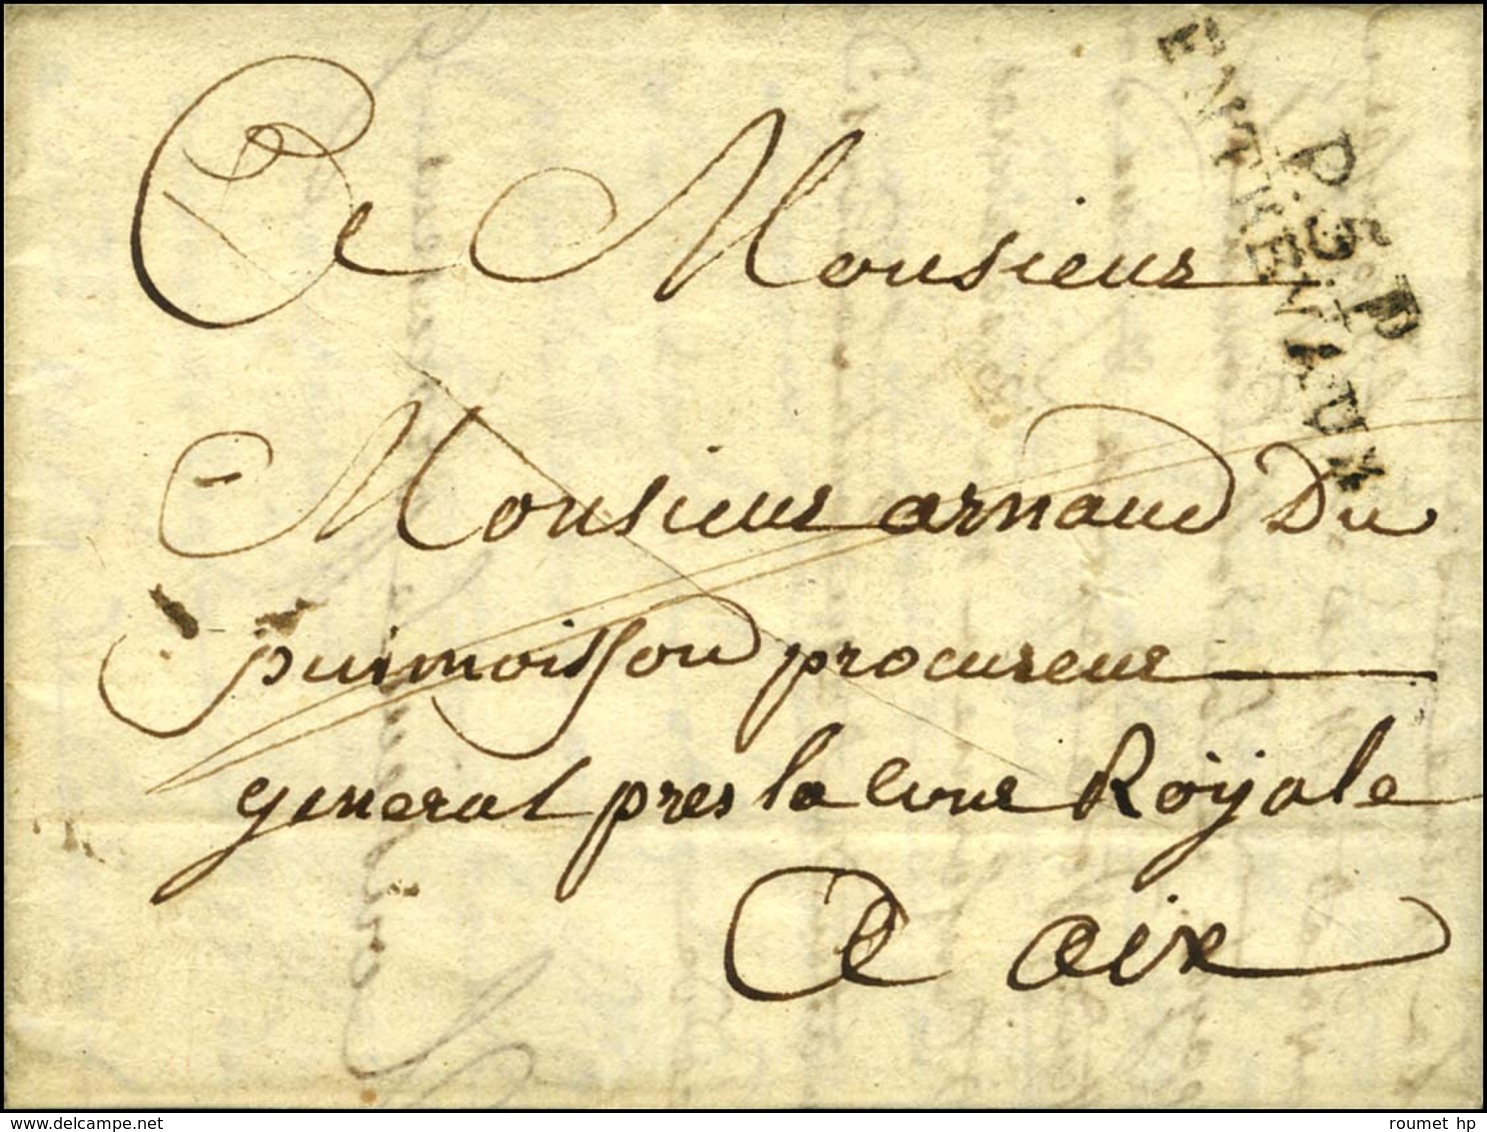 P.5.P
ENTREVAUX
A Monsieur
Monsieur arnaud Du
puimoisson procureur
general pres la cour Royale
A aix
roumet hp